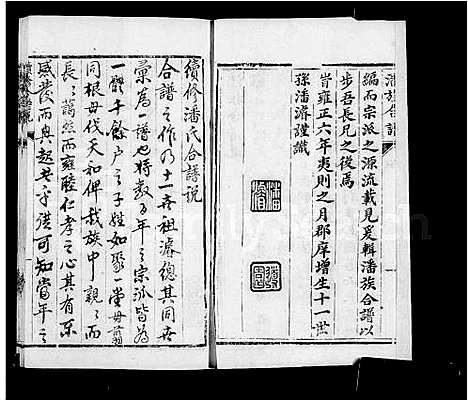 潘族合譜
編而宗派之源流載見爰輯潘族合譜以
步吾長兄之後焉
旹雍正六年夷則之月郡庠增生十一世
孫潘濬謹識
續修潘氏合譜說
合譜之作乃十一世祖濬總其同世
彙為一譜也將數百年之宗派皆為
一體千餘户之子姓如聚一堂毋翦
同根毋伐天和俾我族中親親而
長長藹然而雍睦仁孝之心其有不
感發而興起者乎洪可知當年之